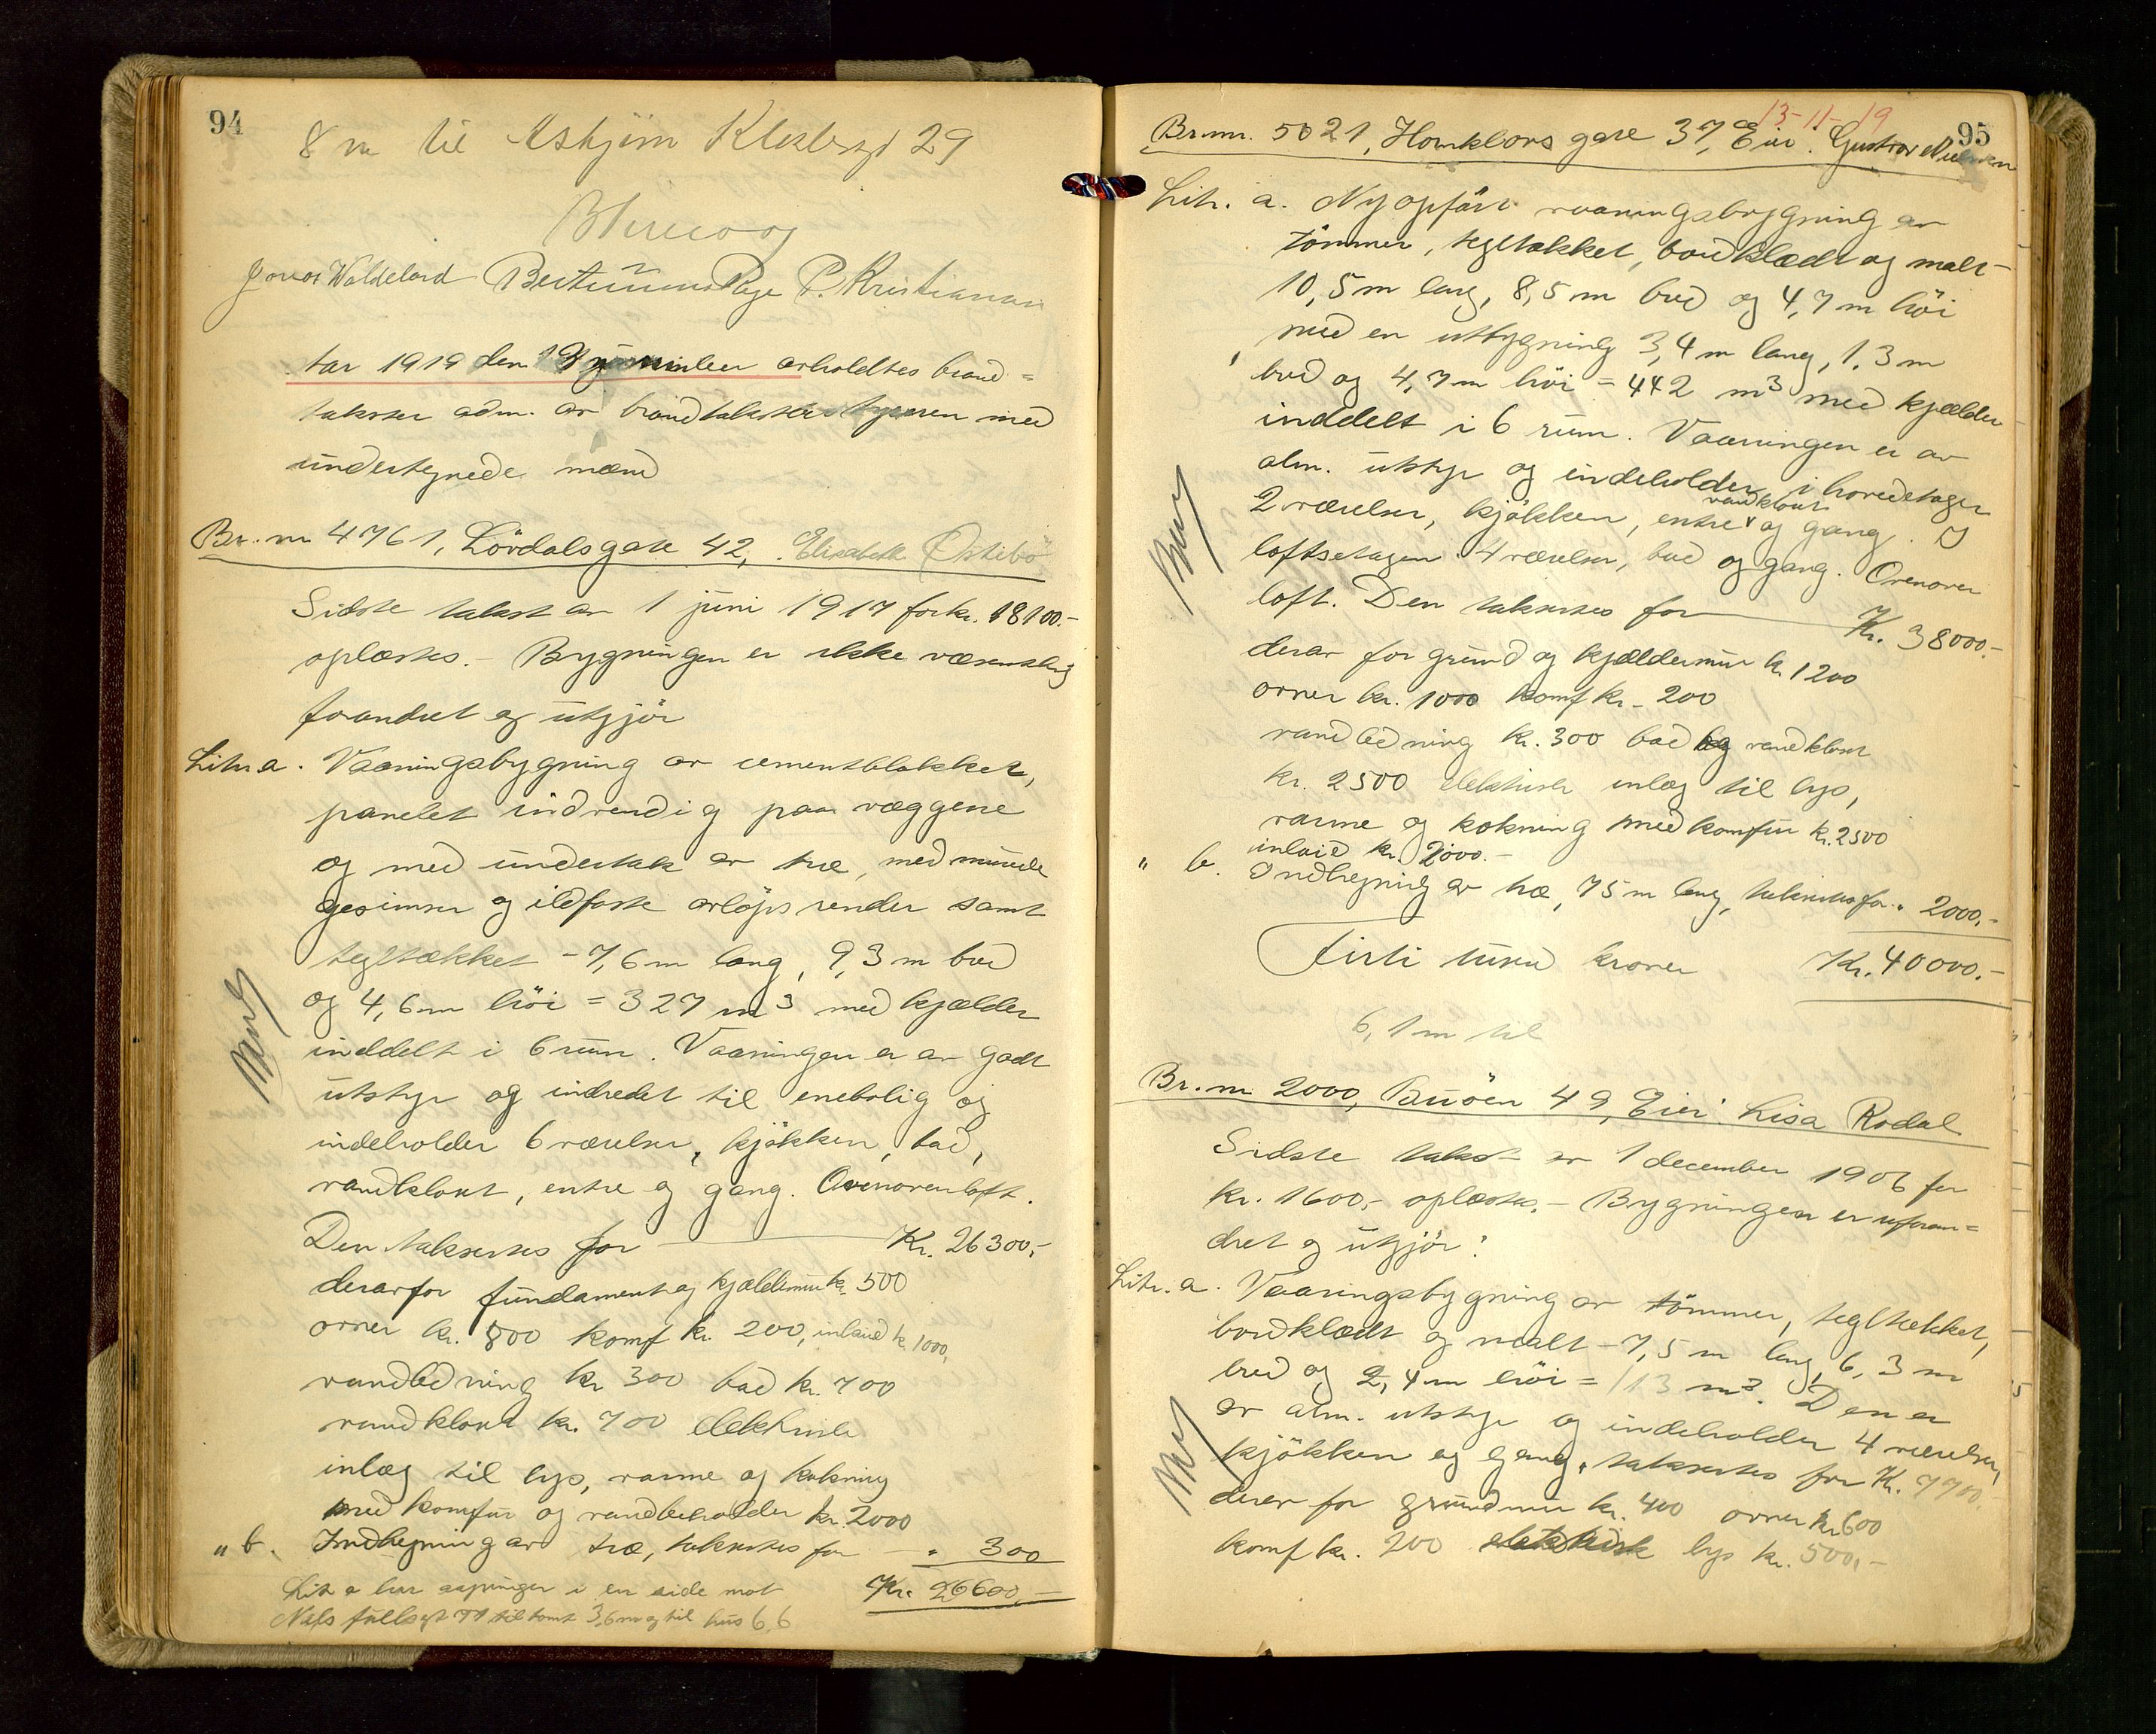 94
8 m til Asbjørn Klostersgt 29
Jonas Waldeland P. Kristiansen
Aar 1919 den 13 november avholdtes brand=
takster adm. av brandtakstbestyreren med
undertegnede mænd
Br. nr 4761, Lövdalsgate 42, Elisabeth Östebö
Sidste takst av 1 juni 1917 for kr. 18100.-
oplæstes. - Bygningen er ikke væsentlig
forandret og utgjör
Litr a. Vaaningsbygning av cementblokker,
panelet indvendig paa væggene
og med undertak av træ, med murede
gesimser og ildfaste avlöpsrender samt
tegltækket - 7,6 m lang, 9,3 m bred
og 4,6 m höi = 327 m3 med kjælder
inddelt i 6 rum. Vaaningen er av godt
utstyr og indredet til enebolig og
indeholder 6 værelser, kjökken, bad,
vandkloset, entre og gang. Ovenover loft.
Den taksertes for Kr. 26300,-
derav for fundament og kjældermur kr. 500
ovner kr. 800 komf kr. 200, inlaid kr. 1000,
vandledning kr 300 bad kr. 700
vandkloset kr. 700 elektriske
inlæg til lys, varme og kokning
med komfur og vandbeholder kr. 2000
" b. Indhegning av træ, taksertes for " 300
Kr. 26600,-
Litr a har aapninger i en side mot
Nils til tomt 3,6 m og til hus 6,6
13-11-19
95
Br. nr. 5021, Haukelions gate 37, Eier: Gustav Nielsen
Litr. a. Nyopfört vaaningsbygning av
tömmer, tegltækket, bordklædt og malt -
10,5 m lang, 8,5 m bred og 4,7 m höi
med en utbygning 3,4 m lang, 1,3 m
bred og 4,7 m höi = 442 m3 med kjælder
inddelt i 6 rum. Vaaningen er av
alm. utstyr og indeholder i hovedetagen
2 værelser, kjökken, entre vandkloset og gang. I
loftsetagen 4 værelser, bad og gang. Ovenover
loft. Den taksertes for Kr. 38000.-
derav for grund og kjældermur kr. 1200
ovner kr. 1000 komf kr. 200
vandledning kr. 300 bad og vandkloset
kr. 2500 elektriske inlæg til lys,
varme og kokning med komfur kr. 2500
inlaid kr. 2000.-
" b. Indhegning av træ, 75 m lang, taksertes for " 2000,-
Firti tusen kroner Kr. 40000.-
6,1 m til
Br. nr 2000, Buöen 49, Eier: Lisa Rodal
Sidste takst av 1 december 1906 for
kr. 1600,- oplæstes. - Bygningen er uforan=
dret og utgjör:
Litr. a. Vaaningsbygning av tömmer, tegltækket,
bordklædt og malt - 7,5 m lang, 6,3 m
bred og 2,4 m höi = 113 m3. Den er
av alm. utstyr og indeholder 4 værelser,
kjökken og gang, taksertes for Kr. 7700.-
derav for grundmur kr. 400 ovner kr 600
komf kr. 200 elektrisk lys kr. 500,-